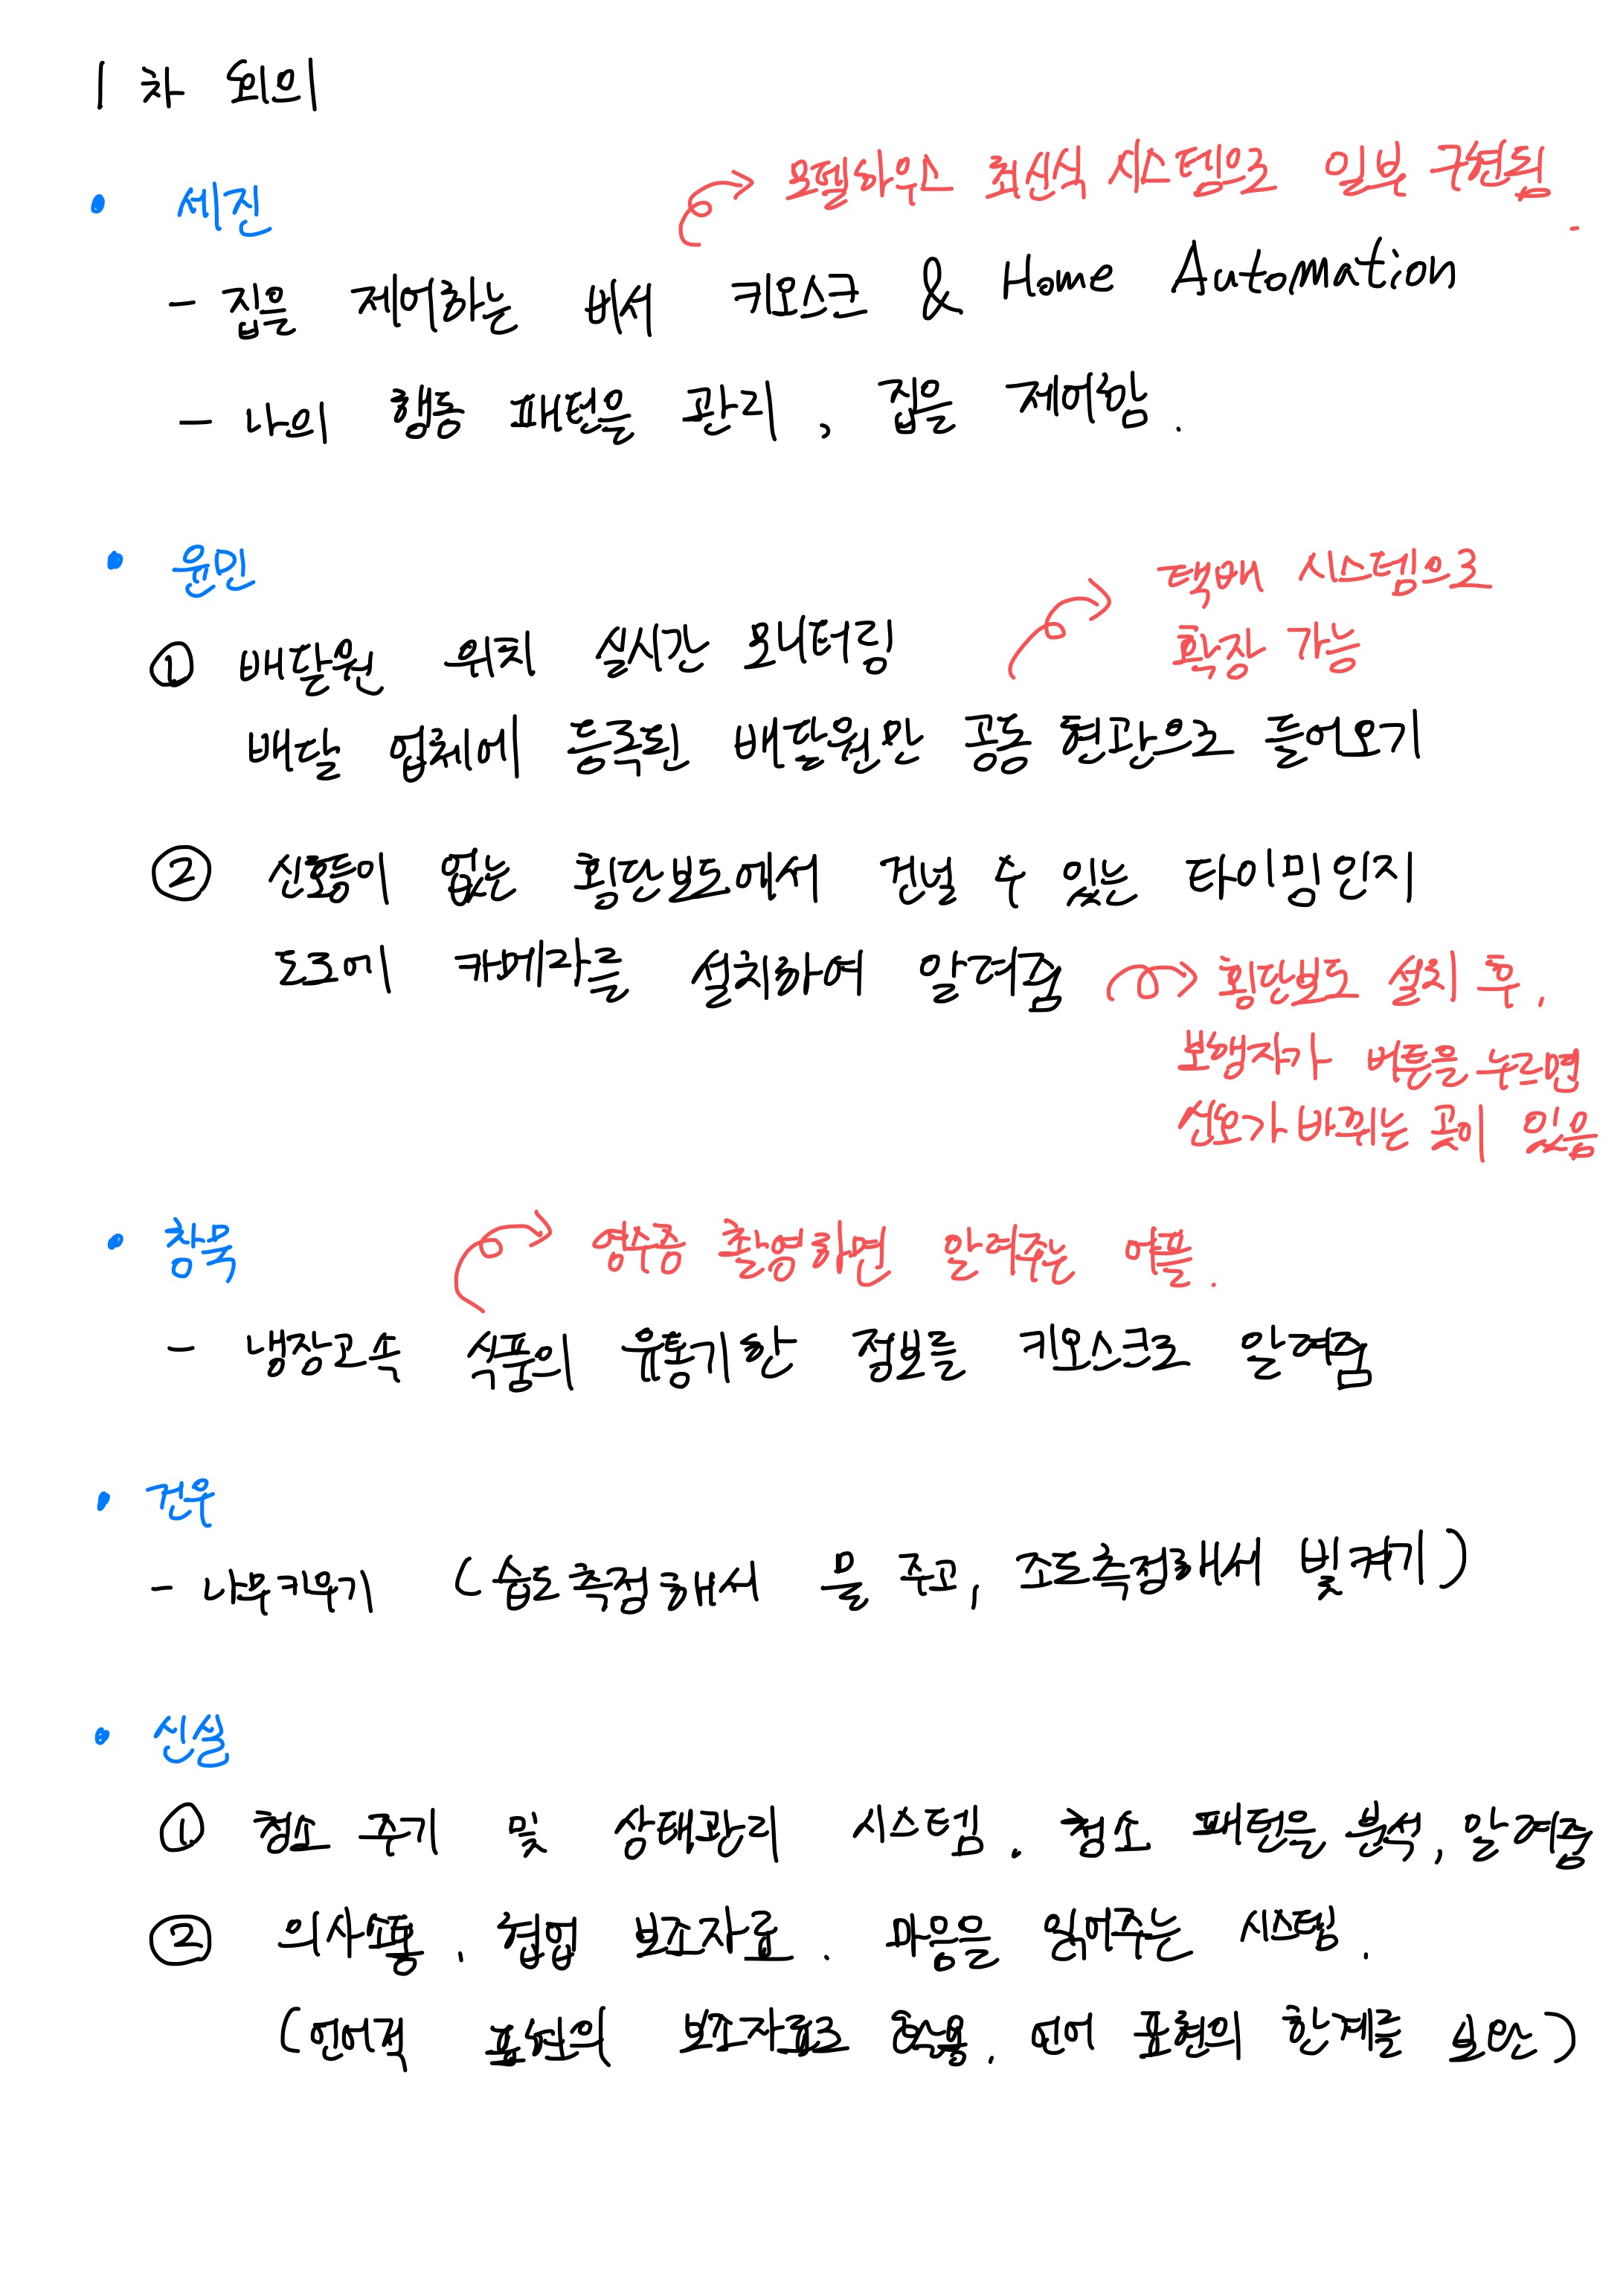 1차 회의
• 세진
→ 모델하우스 최신식 시스템으로 일부 구현됨.
- 집을 제어하는 비서 키오스크 & Home Automation
- 나의 행동 패턴을 관리, 집을 제어함.
• 윤민
① 배달원 위치 실시간 모니터링
→ 택배 시스템으로
확장 가능
배달 업체에 등록된 배달원만 공동 현관으로 들어오기
② 신호등이 없는 횡단보도에서 건널 수 있는 타이밍인지
도로에 카메라를 설치하여 알려줌
→ 횡단보도 설치 후,
보행자가 버튼을 누르면
신호가 바뀌는 곳이 있음
• 참묵
→ 영수증 촬영하면 알려주는 어플.
- 냉장고속 식품의 유통기한 정보를 키오스크로 알려줌
• 건우
- 나무키우기 (습도측정해서 물 주고, 조도측정해서 빛켜기)
• 신실
① 청소 주기 및 상태관리 시스템. 청소 패턴을 분석, 알려줌
② 의사소통, 협업 보조자료. 마음을 읽어주는 시스템.
(언어적 표현의 보조자료로 활용. 언어 표현의 한계를 보완)